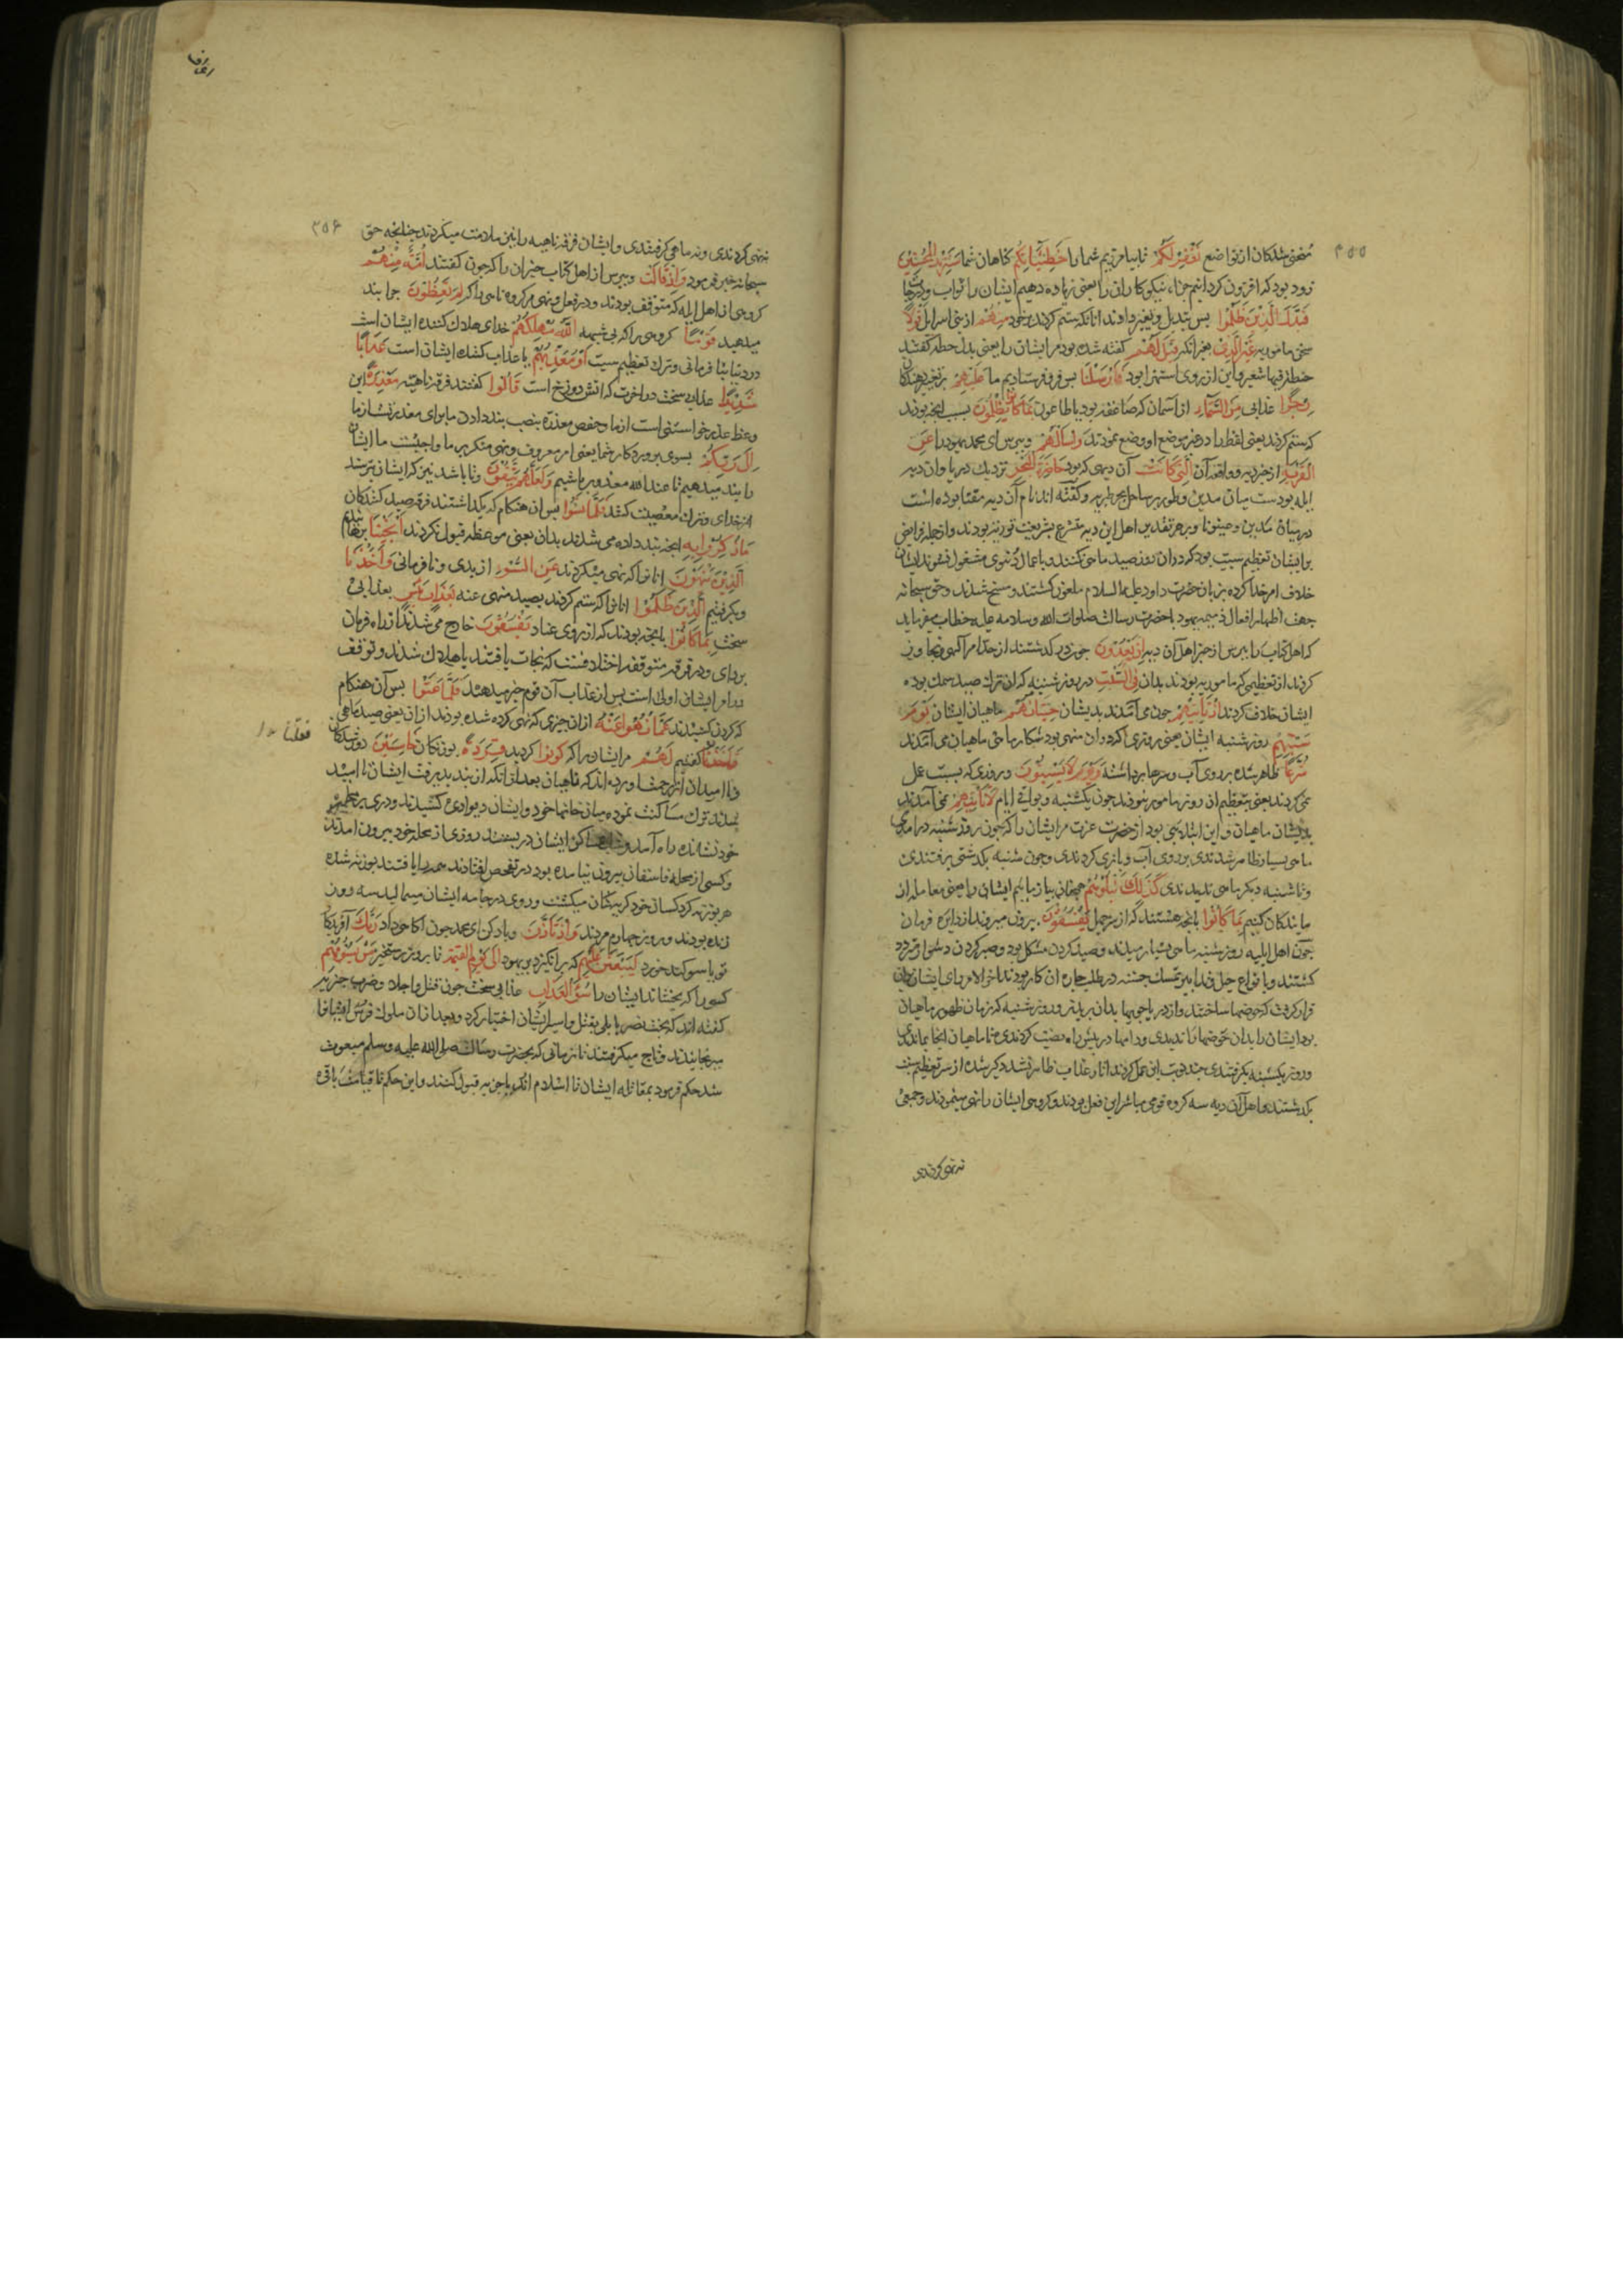 ۳۵۵
منحنی شدکان از تواضع نَغْفِرْ لَكُمْ تا بیامرزیم شما را خَطِيئَاتِكُمْ کناهان شما سَنَزِيدُ الْمُحْسِنِينَ
زود بود که افزون کردانیم جزاء نیکوکاران را یعنی زیاده دهیم ایشان را ثواب و درجات
فَبَدَّلَ الَّذِينَ ظَلَمُوا بس تبدیل و تغییر دادند انانکه ستم کردند بر خود مِنْهُمْ از بنی اسرایل قَوْلًا
سخن مامور به غَيْرَ الَّذِي بغیر انکه قِيلَ لَهُمْ کفته شده بود مر ایشان را یعنی بدل حطه کفتند
حنطة فیها شعیر و این از روی استهزا بود فَأَرْسَلْنَا بس فرو فرستادیم ما عَلَيْهِمْ بر تغییر دهندکان
رِجْزًا عذابی مِنَ السَّمَاءِ از آسمان که صاعقه بود یا طاعون بِمَا كَانُوا يَظْلِمُونَ بسبب انجه بودند
که ستم کردند یعنی لفظ را در غیر موضع او وضع نمودند وَاسْأَلْهُمْ و ببرس ای محمد یهود را عَنِ
الْقَرْيَةِ از خبر دیه و واقعه آن الَّتِي كَانَتْ آن دیهی که بود حَاضِرَةَ الْبَحْرِ نزدیك دریا وان دیه
ایله بودست میان مدین و طور بر ساحل بحر طبریه و کفته اند نام آن دیه مقنا بوده است
در میان مدین و عینونا و بهر تقدیر اهل این دیه متشرع بشریعت توریة بودند و از جمله فرایض
بر ایشان تعظیم سبت بود که در ان روز صید ماهی نکنند و باعمال دنیوی مشغول نشوند ایشان
خلاف امر خدا کرده بزبان حضرت داود علیه السلام ملعون کشتند و مسخ شدند و حق سبحانه
جهت اظهار افعال ذمیمه یهود با حضرت رسالت صلوات الله وسلامه علیه خطاب میفرماید
که اهل کتاب را ببرس از خبر اهل آن دیه إِذْ يَعْدُونَ جون در کذشتند از حد امر الهی و تجاوز
کردند از تعظیمی که مامور به بودند بدان فِي السَّبْتِ در روز شنبه که ان ترك صید سمك بوده
ایشان خلاف کردند إِذْ تَأْتِيهِمْ جون می آمدند بدیشان حِيتَانُهُمْ ماهیان ایشان يَوْمَ
سَبْتِهِمْ روز شنبه ایشان یعنی روزی که در وان منهی بود شکار ماهی ماهیان می آمدند
شُرَّعًا ظاهر شده بر روی آب و سرها برداشته وَيَوْمَ لَا يَسْبِتُونَ و روزی که بسبت عمل
نمی کردند یعنی بتعظیم ان روز مامور نبودند جون یکشنبه و بواقی ایام لَا تَأْتِيهِمْ نمی آمدند
بدیشان ماهیان و این ابتلایی بود از حضرت عزت مر ایشان را که جون روز شنبه در امدی
ماهی بسیار ظاهر شدندی بر روی آب و بازی کردندی و جون شنبه بکذشتی برفتندی
و تا شنبه دیکر ماهی ندیدندی كَذَلِكَ نَبْلُوهُمْ همجنان بیازماییم ایشان را یعنی معامله از
مایندکان کنیم بِمَا كَانُوا بانجه هستند که از سر جهل يَفْسُقُونَ بیرون میروند از دایره فرمان
جون اهل ایلیه روز شنبه ماهی بسیار میدیدند و صید کردن مشکل بود و صبر کردن دشوار متردد
کشتند و بانواع حیل و تدابیر تمسك جسته در طلب جاره ان کار بودند اخر الامر رای ایشان بران
قرار کرفت که حوضها ساختند و از دریا جویها بدان بریدند و روز شنبه که زمان ظهور ماهیان
بود ایشان را بدان حوضها راندیدی و دامها در بیش راه نصب کردندی تا ماهیان انجا بماندندی
و روز یکشنبه بکرفتندی جند نوبت این عمل کردند اثار عذاب ظاهر نشد دیکر شده از سر تعظیم سبت
بکذشتند و اهل آن دیه سه کروه قومی مباشر این فعل بودند و کروهی ایشان را نهی مینمودند و جمعی
نه نهی کردندی
اعراف
۳۵۶
نهی کردندی و نه ماهی کرفتندی و ایشان فرقه ناهیه را نیز ملامت میکردند جنانجه حق
سبحانه خبر فرمود وَإِذْ قَالَتْ و ببرس از اهل کتاب خبر ان را که جون کفتند أُمَّةٌ مِنْهُمْ
کروهی از اهل ایله که متوقف بودند و در فعل و نهی مر کروه ناهی را که لِمَ تَعِظُونَ جرا بند
میدهید قَوْمًا کروهی را که بی شبهه اللَّهُ مُهْلِكُهُمْ خدای هلاك کننده ایشان است
در دنیا بنا فرمانی و ترك تعظیم سبت أَوْ مُعَذِّبُهُمْ یا عذاب کننده ایشان است عَذَابًا
شَدِيدًا عذابی سخت در اخرت که اتش دوزخ است قَالُوا کفتند فرقه ناهیه مَعْذِرَةً این
وعظ عذر خواستنی است از ما و حفص معذرة بنصب بند دادن ما برای معذرتست از ما
إِلَى رَبِّكُمْ بسوی بروردکار شما یعنی امر معروف و نهی منکر بر ما واجبست ما ایشان
را بند میدهیم تا عند الله معذور باشیم وَلَعَلَّهُمْ يَتَّقُونَ و تا باشد نیز که ایشان بترسند
از خدای و ترك معصیت کنند فَلَمَّا نَسُوا بس ان هنکام که بکذاشتند فرقه صید کنندکان
مَا ذُكِّرُوا بِهِ انجه بند داده می شدند بدان یعنی موعظه قبول نکردند أَنْجَيْنَا برهانیدیم
الَّذِينَ يَنْهَوْنَ انانرا که نهی میکردند عَنِ السُّوءِ از بدی و نافرمانی وَأَخَذْنَا
و بکرفتیم الَّذِينَ ظَلَمُوا انانرا که ستم کردند بصید منهی عنه بِعَذَابٍ بَئِيسٍ بعذابی
سخت بِمَا كَانُوا بانجه بودند که از روی عناد يَفْسُقُونَ خارج می شدند از راه فرمان
برداری و در فرقه متوقفه اختلافست که نجات یافتند یا هلاك شدند و توقف
در امر ایشان اولی است بس از عذاب آن قوم خبر میدهد فَلَمَّا عَتَوْا بس آن هنکام
که کردن کشیدند عَنْ مَا نُهُوا عَنْهُ ازان جیزی که نهی کرده شده بودند ازان یعنی صید ماهی
قُلْنَا کفتیم لَهُمْ مر ایشان را که كُونُوا کردید قِرَدَةً بوزنکان خَاسِئِينَ دور شدکان
قلنا
و ناامیدان از رحمت اورده اند که ناهیان بعد از انکه از بند بذیرفت ایشان ناامید
شدند ترك مساکنت نموده میان خانها خود و ایشان دیواری کشیدند و دری بر محله
خود نشانده راه آمد و شد ایشان در بستند روزی از محله خود بیرون امدند
و کسی از محله فاسقان بیرون نیامده بود در تفحص افتادند همه را یافتند بوزنه شده
هر بوزنه کرد کسان خود کریه کنان میکشت و روی در جامه ایشان میمالید سه روز
زنده بودند و روز جهارم مردند وَإِذْ تَأَذَّنَ و یاد کن ای محمد جون اکاهی داد رَبُّكَ آفریدکار
تو یا سوکند خورد لَيَبْعَثَنَّ عَلَيْهِمْ که بر انکیزد بر یهود إِلَى يَوْمِ الْقِيَامَةِ تا بروز رستخیز مَنْ يَسُومُهُمْ
کسی را که بجشاند ایشان را سُوءَ الْعَذَابِ عذابی سخت جون قتل و اجلا و ضرب جزیه
کفته اند که بخت نصر بابلی بقتل و اسیر ایشان اختیار کرد و بعد ازان ملوك فرس ایشانرا
میرنجانیدند و باج میکرفتند تا زمانی که حضرت رسالت صلی الله علیه وسلم مبعوث
شد حکم فرمود بمقاتله ایشان تا اسلام ارند یا جزیه قبول کنند و این حکم تا قیامت باقی